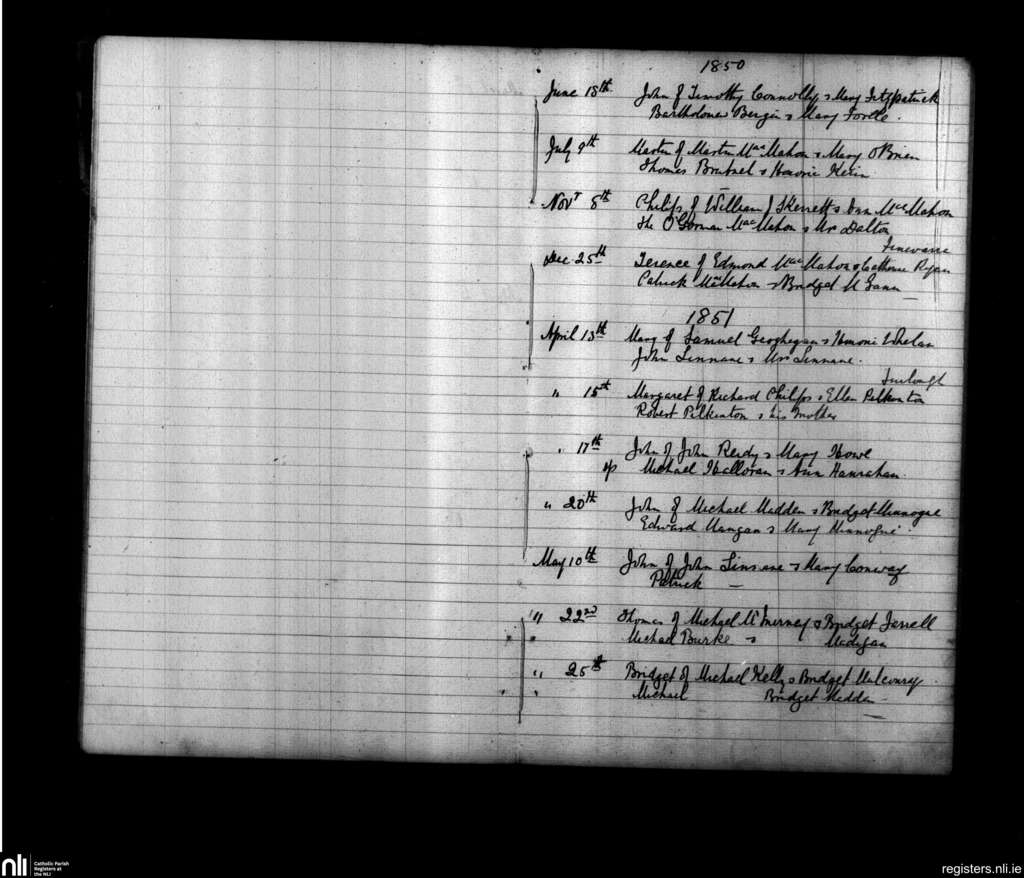 1850
June 18th John of Timothy Connolly & Mary Fitzpatrick
Bartholomew Bergin & Mary
July 9th Martin of Martin Mac Mahon & Mary O'Brien
Thomas & Honorie Kerin
Novr 8th Philip of William J Skerrett & Ann Mac Mahon
The O'Gorman Mac Mahon & Mr Dalton
Finevarra
Dec 25th Terence of Edmond Mac Mahon & Catherine Ryan
Patrick MacMahon & Bridget McGann
1851
April 13th Mary of Samuel Geoghegan & Honorie Whelan
John Linnane & Mrs Linnane.
Turlough
" 15th Margaret of Richard Philips & Ellen Pilkinton
Robert Pilkinton & his mother
" 17th John of John Reidy & Mary Howe
sp Michael Halloran & Ann Hanrahan
" 20th John of Michael Madden & Bridget Minnogue
Edward Mangan & Mary Minnogue
May 10th John of John Linnane & Mary Conway
Patrick —
" 22nd Thomas of Michael McInerney & Bridget
" Michael Burke & Madigan
" 25th Bridget of Michael Kelly & Bridget Mulconry
" Michael Bridget Madden
nli
Catholic Parish
Registers at
the NLI
registers.nli.ie